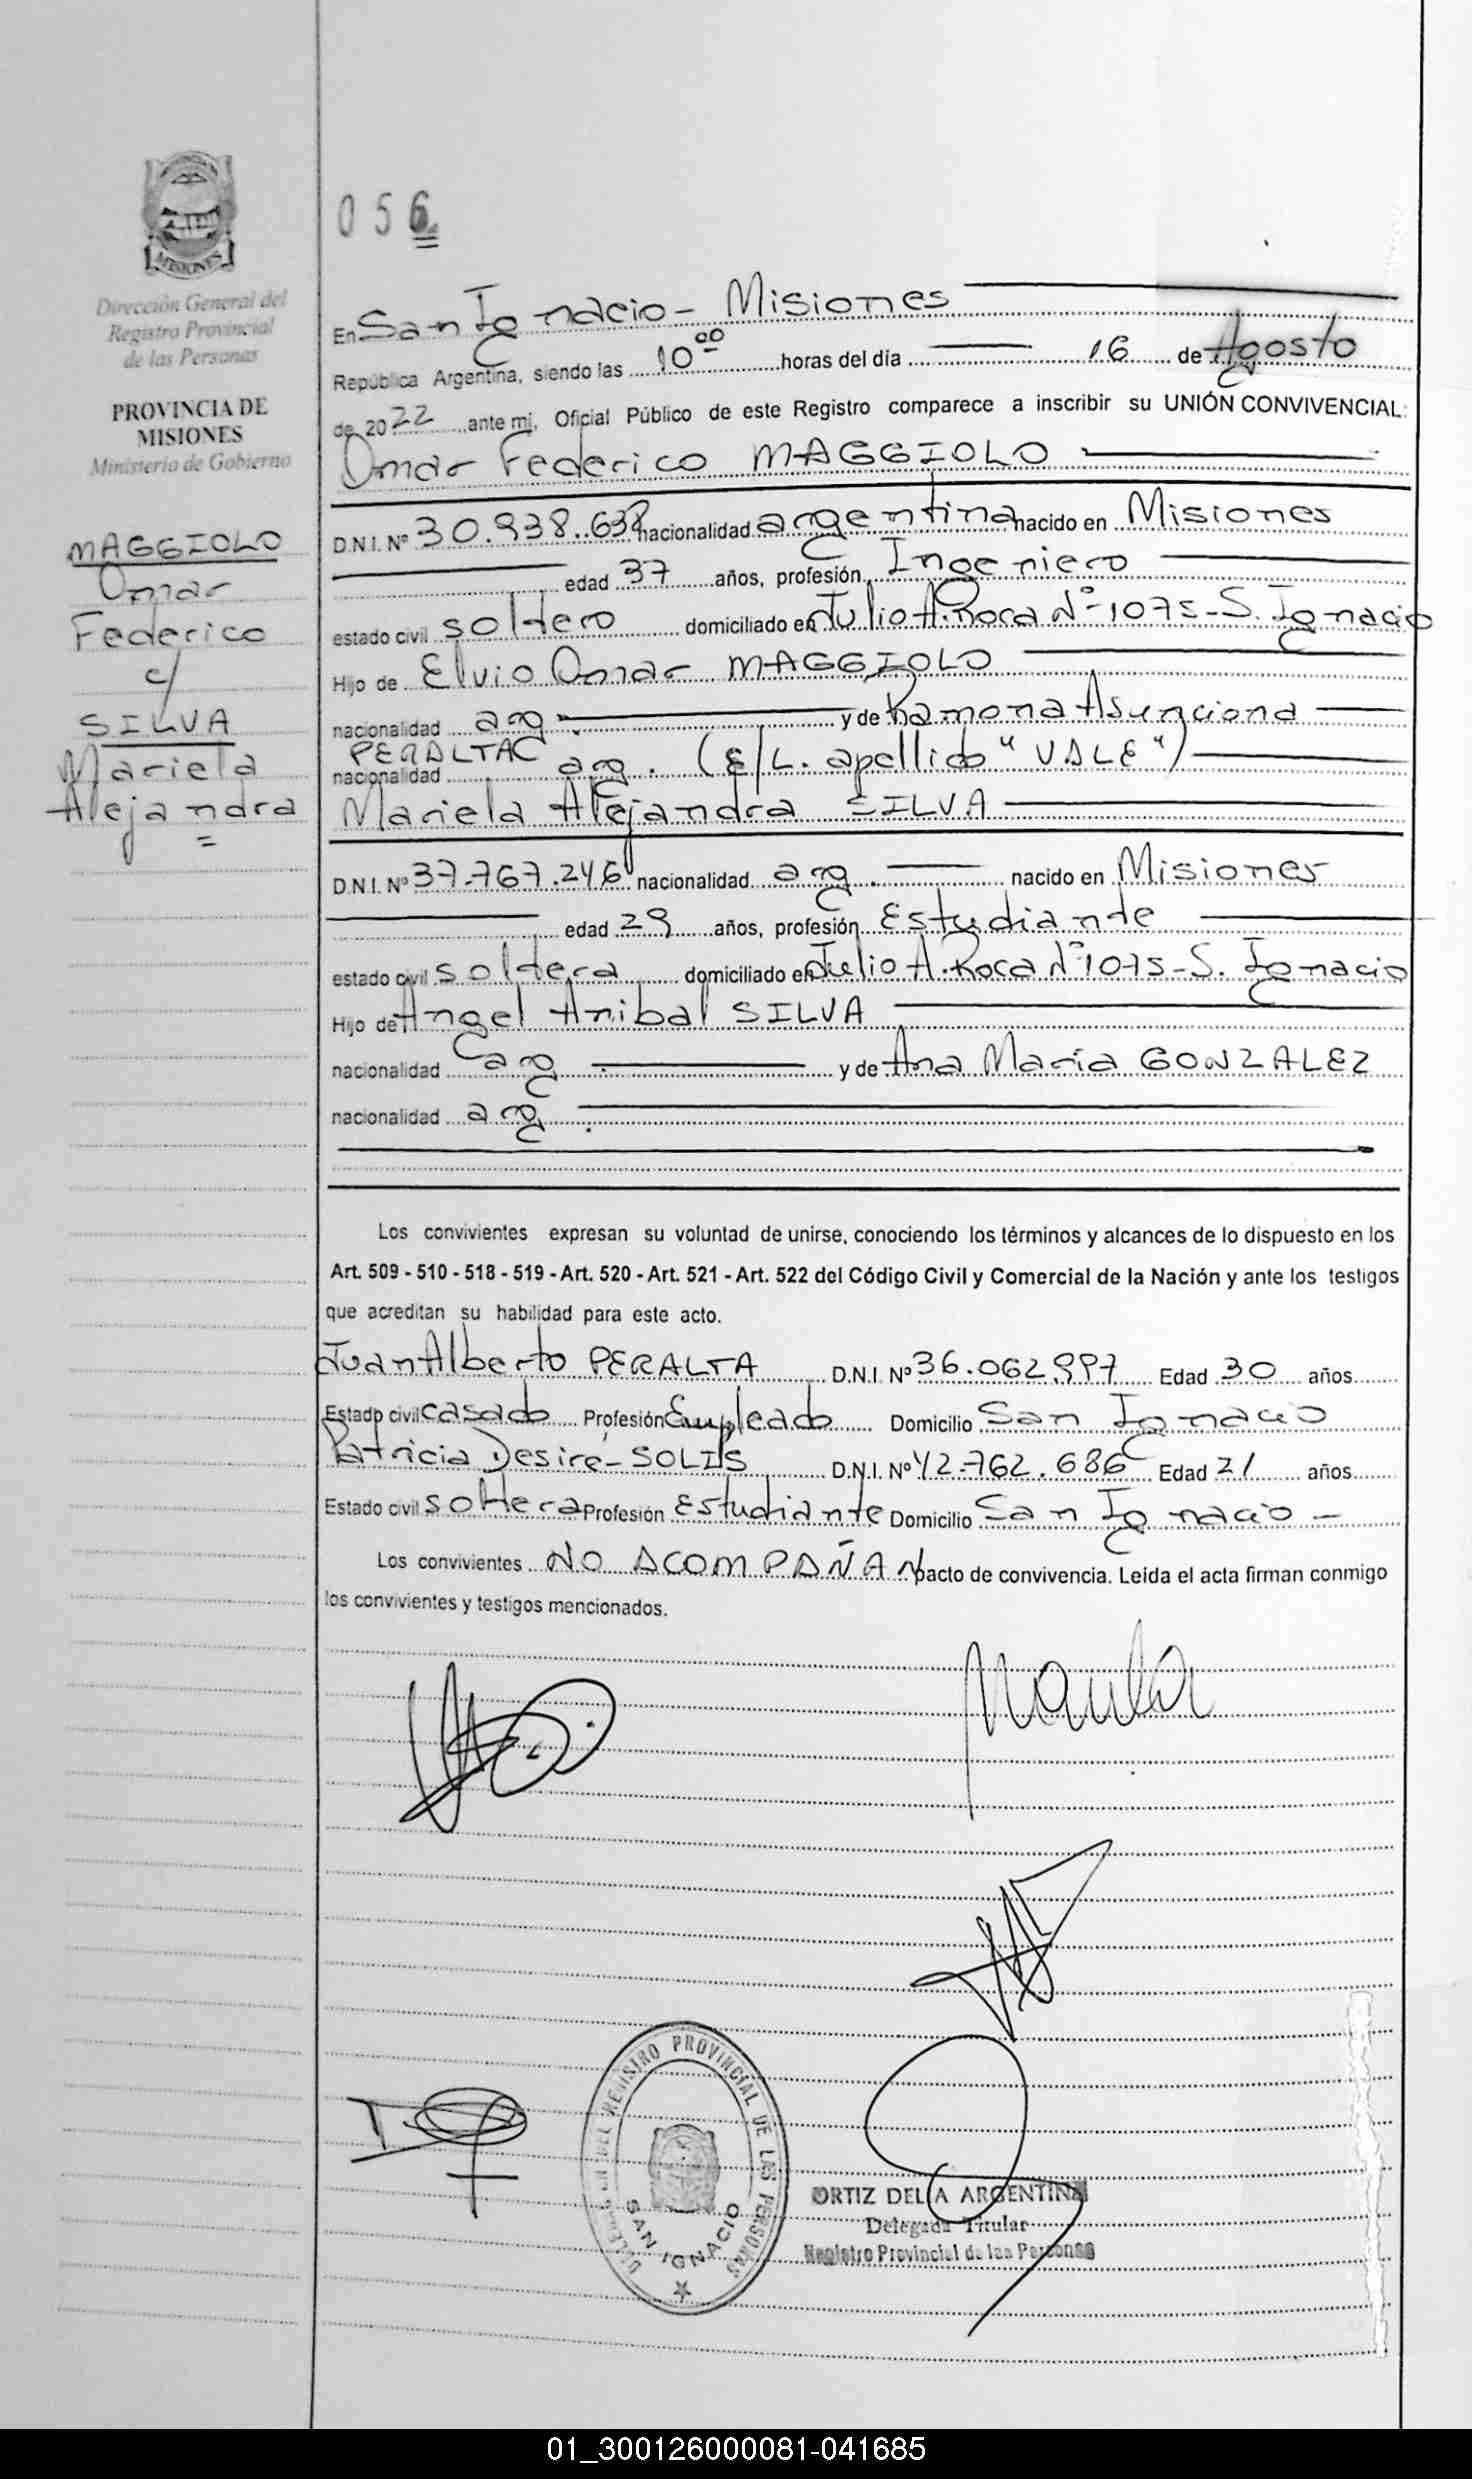 MISIONES
Dirección General del
Registro Provincial
de las Personas
PROVINCIA DE
MISIONES
Ministerio de Gobierno
MAGGIOLO
Omar
Federico
c/
SILVA
Mariela
Alejandra
056
En San Ignacio - Misiones
República Argentina, siendo las 10 00 horas del día 16 de Agosto
de 2022 ante mi, Oficial Público de este Registro comparece a inscribir su UNIÓN CONVIVENCIAL:
Omar Federico MAGGIOLO
D.N.I. Nº 30.938.638 nacionalidad argentina nacido en Misiones
edad 37 años, profesión Ingeniero
estado civil soltero domiciliado en Julio A. Roca Nº 1075 - S. Ignacio
Hijo de Elvio Omar MAGGIOLO
nacionalidad arg. y de Ramona Asunciona
PERALTA
nacionalidad arg. (E/L. apellido "VALE")
Mariela Alejandra SILVA
D.N.I. Nº 37.767.246 nacionalidad arg. nacido en Misiones
edad 29 años, profesión Estudiante
estado civil soltera domiciliado en Julio A. Roca Nº 1075 - S. Ignacio
Hijo de Angel Anibal SILVA
nacionalidad arg. y de Ana María GONZALEZ
nacionalidad arg.
Los convivientes expresan su voluntad de unirse, conociendo los términos y alcances de lo dispuesto en los
Art. 509 - 510 - 518 - 519 - Art. 520 - Art. 521 - Art. 522 del Código Civil y Comercial de la Nación y ante los testigos
que acreditan su habilidad para este acto.
Juan Alberto PERALTA D.N.I. Nº 36.062.997 Edad 30 años
Estado civil casado Profesión Empleado Domicilio San Ignacio
Patricia Desiré - SOLIS D.N.I. Nº 42.762.686 Edad 21 años
Estado civil soltera Profesión Estudiante Domicilio San Ignacio -
Los convivientes NO ACOMPAÑAN pacto de convivencia. Leída el acta firman conmigo
los convivientes y testigos mencionados.
DEL REGISTRO PROVINCIAL DE LAS PERSONAS
SAN IGNACIO
ORTIZ DELIA ARGENTINA
Delegada Titular
Registro Provincial de las Personas
01_300126000081-041685